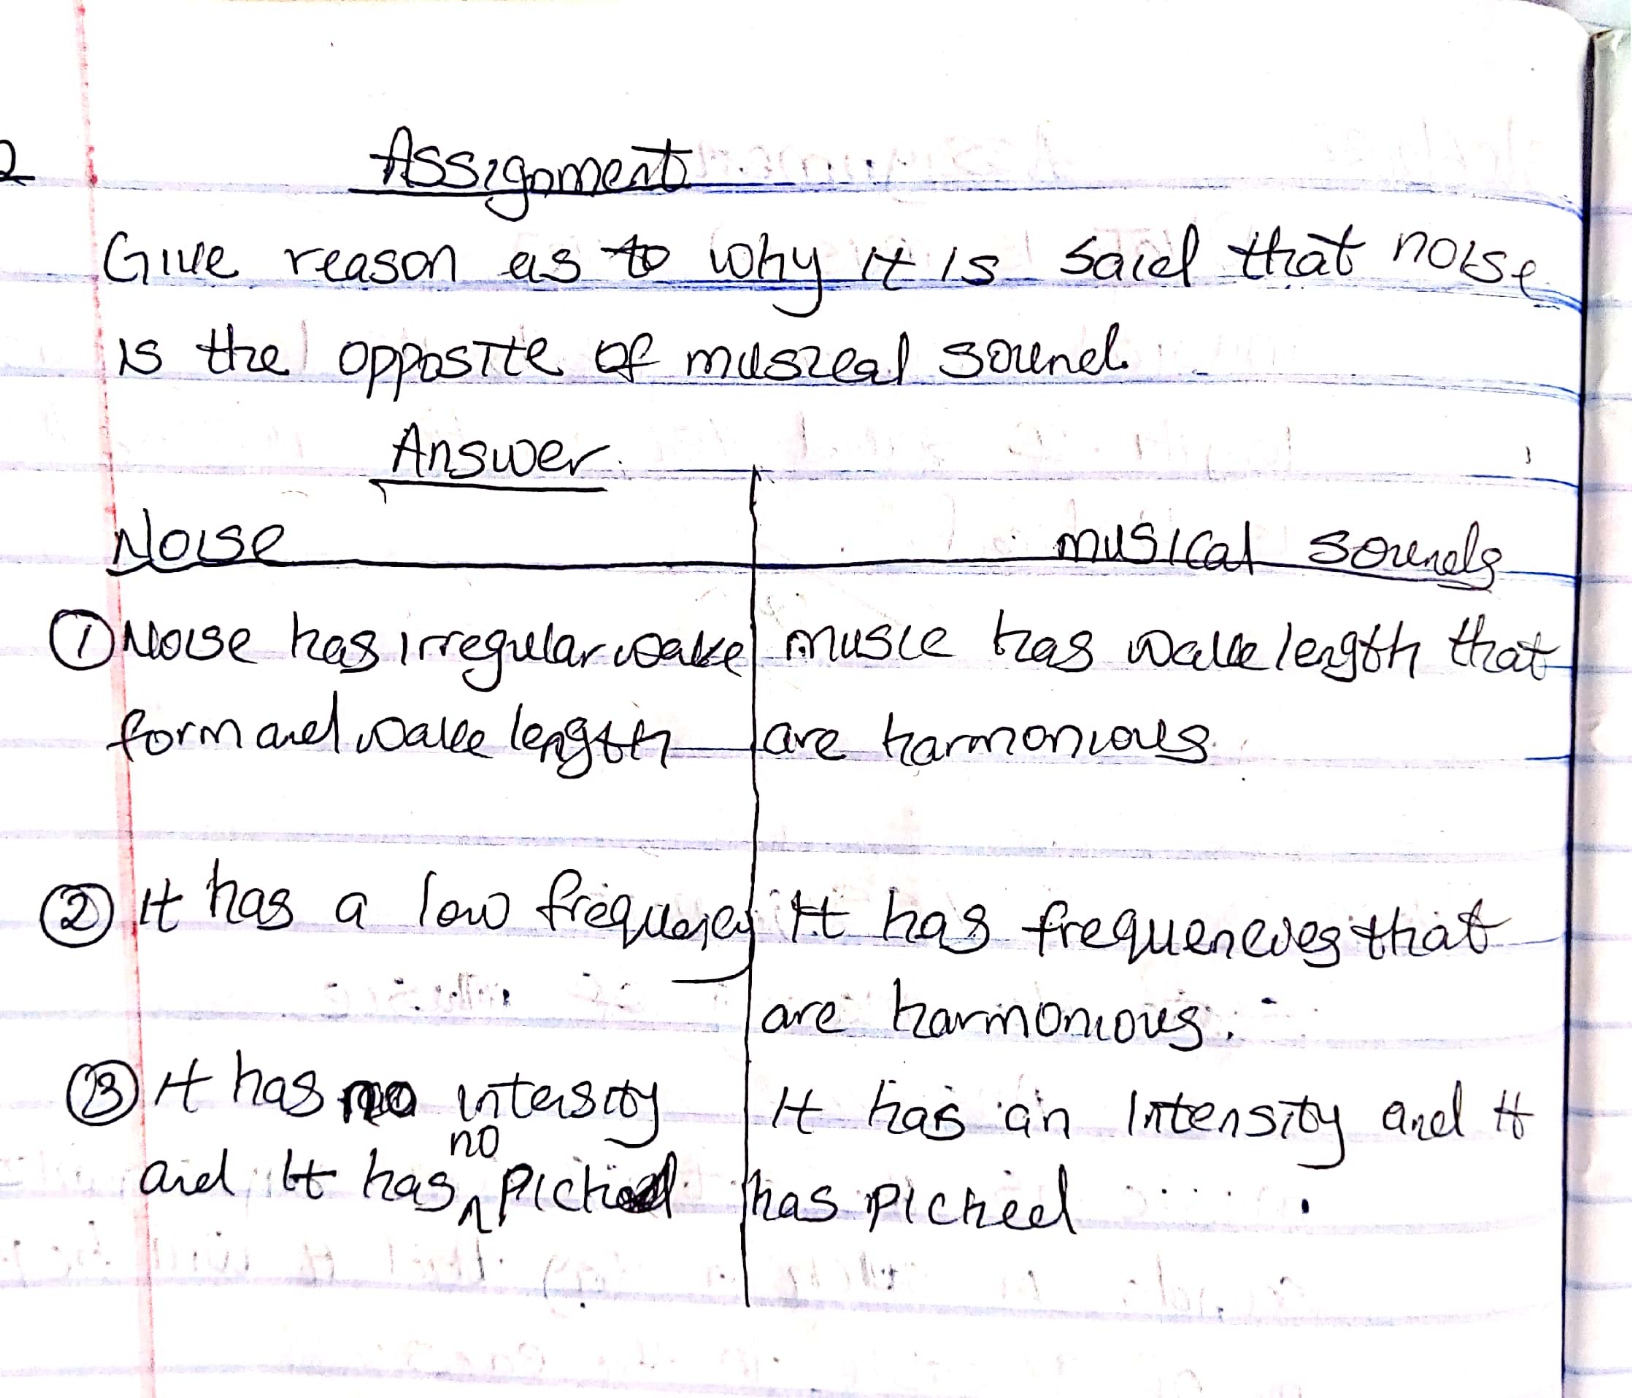 2
Assignment
Give reason as to why it is said that noise
is the opposite of musical sound.
Answer
Noise
musical sounds
① Noise has irregular wave
form and wave length
music has wave length that
are harmonious.
② It has a low frequency
It has frequencies that
are harmonious.
③ It has no intesity
and it has no picthed
It has an Intensity and it
has picthed